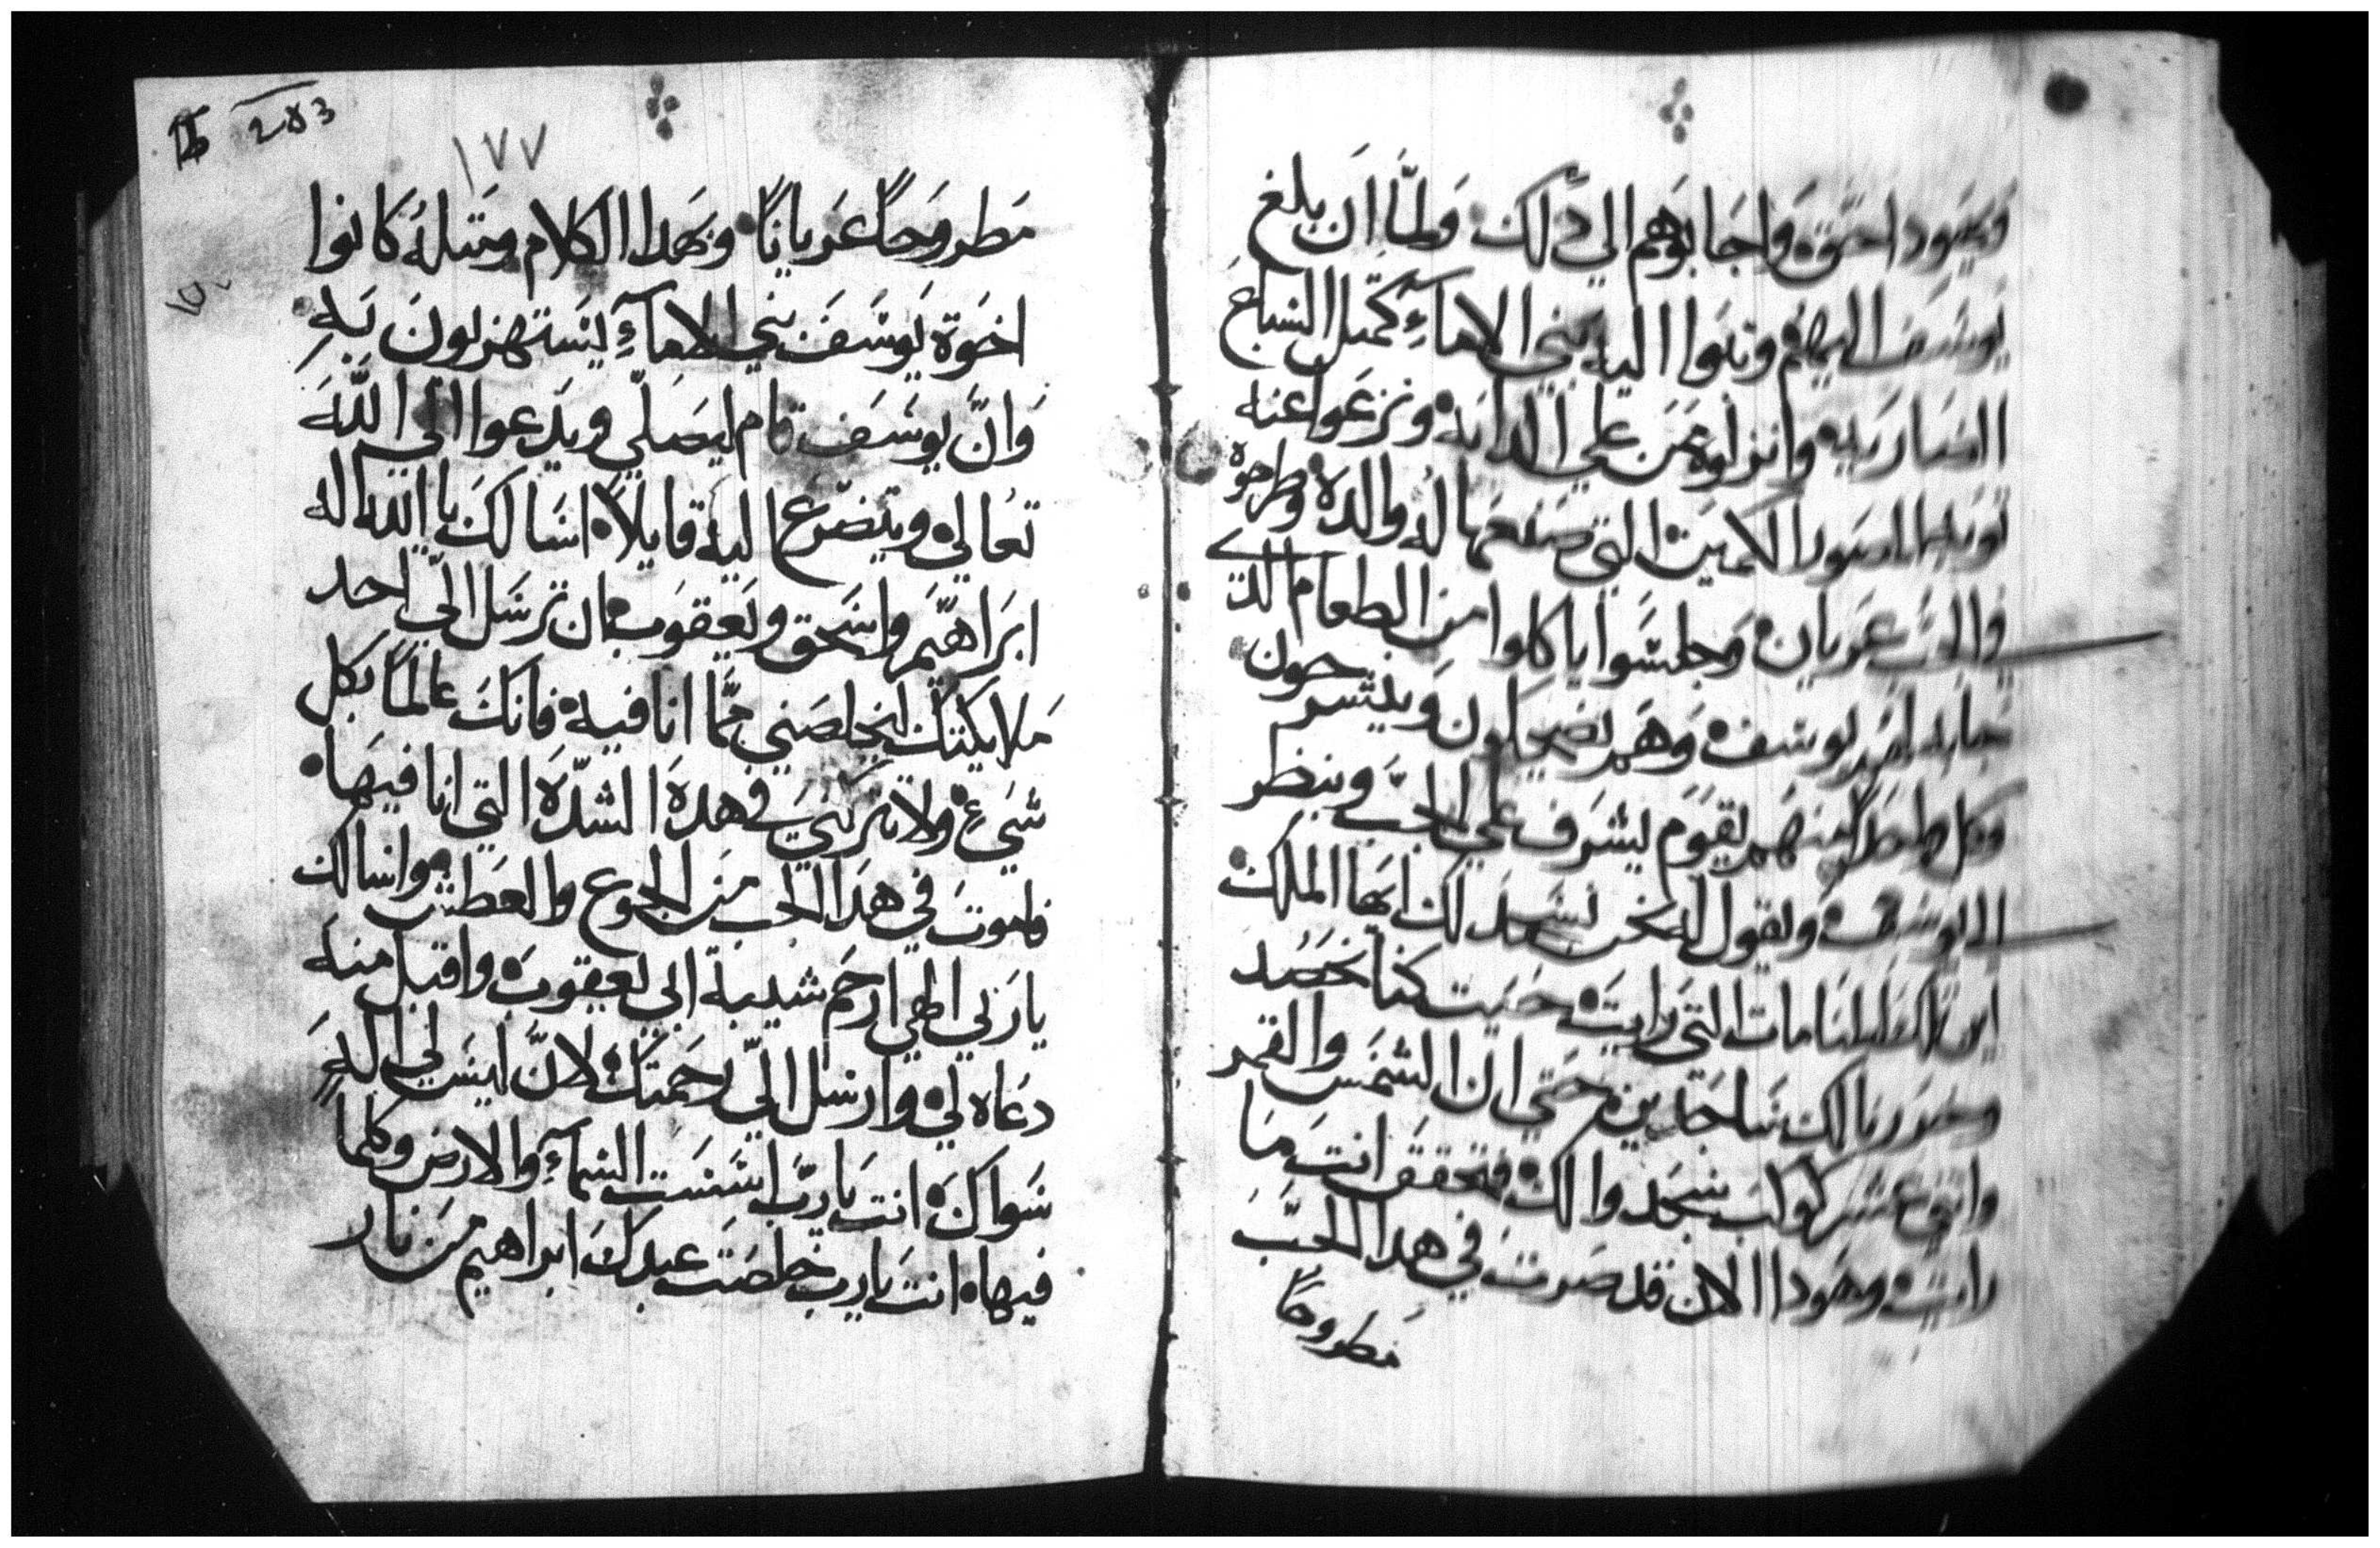 ويهودا اخوة واجابوهم الي دلك ولما ان بلغ
يوسف اليهم وتبوا اليه بني الاماء كمتل السباع
الضاريه وانزلوه عن علي الدابه ونزعوا عنه
توبه الصوف الكمين التي صنعها له والده وطرحوه
في الجب عريان وجلسوا ياكلوا من الطعام الدي
جابه لهم يوسف وهم يضحكون وينشرحون
وكل منهم يقوم يشرف علي الجب وينظر
الي يوسف ويقول له نحن نسجد لك ايها الملك
اين تلك المنامات التي رايت حيت كنا نحصد
وحزمنا لك ساجدين حتي ان الشمس والقمر
واحدي عشر كوكب سجدوا لك فتحقق انت ما
رايته وهودا الان قد صرت في هدا الجب
مطروحا
١٧٧
283
مطروحًا عريانًا وبهدا الكلام ومتله كانوا
اخوة يوسف بني الاماء يستهزيون به
وان يوسف قام ليصلي ويدعوا الي الله
تعالي ويتضرع اليه قايلا اسالك يا الله اله
ابراهيم واسحق ويعقوب ان ترسل الي احد
ملايكتك ليخلصني مما انا فيه فانك عالما بكل
شيء ولا تتركني في هده الشده التي انا فيها
فاموت في هدا الجب من الجوع والعطش واسالك
يا ربي الهي ارحم شيبة ابي يعقوب واقبل منه
دعاه لي وارسل الي رحمتك لان ليس لي اله
سواك انت يا رب اسست السماء والارض وكلما
فيها انت يا رب خلصت عبدك ابراهيم من نار